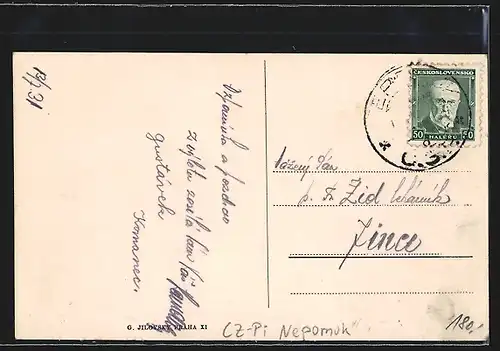 19/7 31
Vzpomínku a pozdrav
z výletu zasílá Vám
Gustávek
Komanec.
ČESKOSLOVENSKO
50 50
HALÉŘŮ
Č.S.R.
Vážený Pán
p. Dr. Zid lékárník
Jince
G. JILOVSKÝ, PRAHA XI
CZ-Pi Nepomuk
180,-